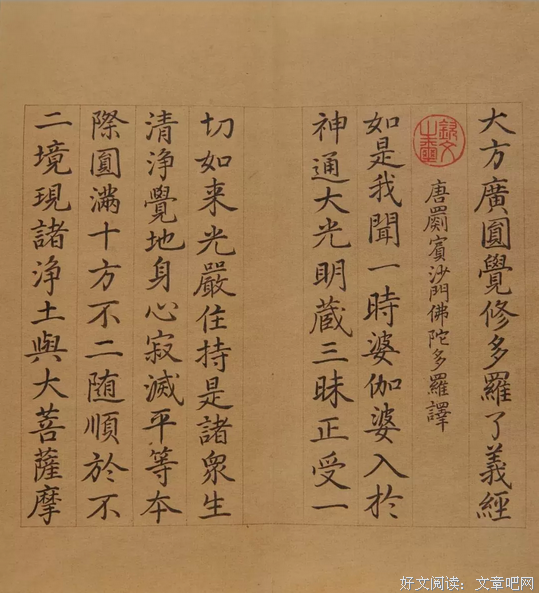 大方廣圓覺修多羅了義經
唐罽賓沙門佛陀多羅譯
如是我聞一時婆伽婆入於
神通大光明蔵三昧正受一
切如来光嚴住持是諸衆生
清浄覺地身心寂滅平等本
際圓滿十方不二随順於不
二境現諸浄土與大菩薩摩
好文阅读：文章吧网